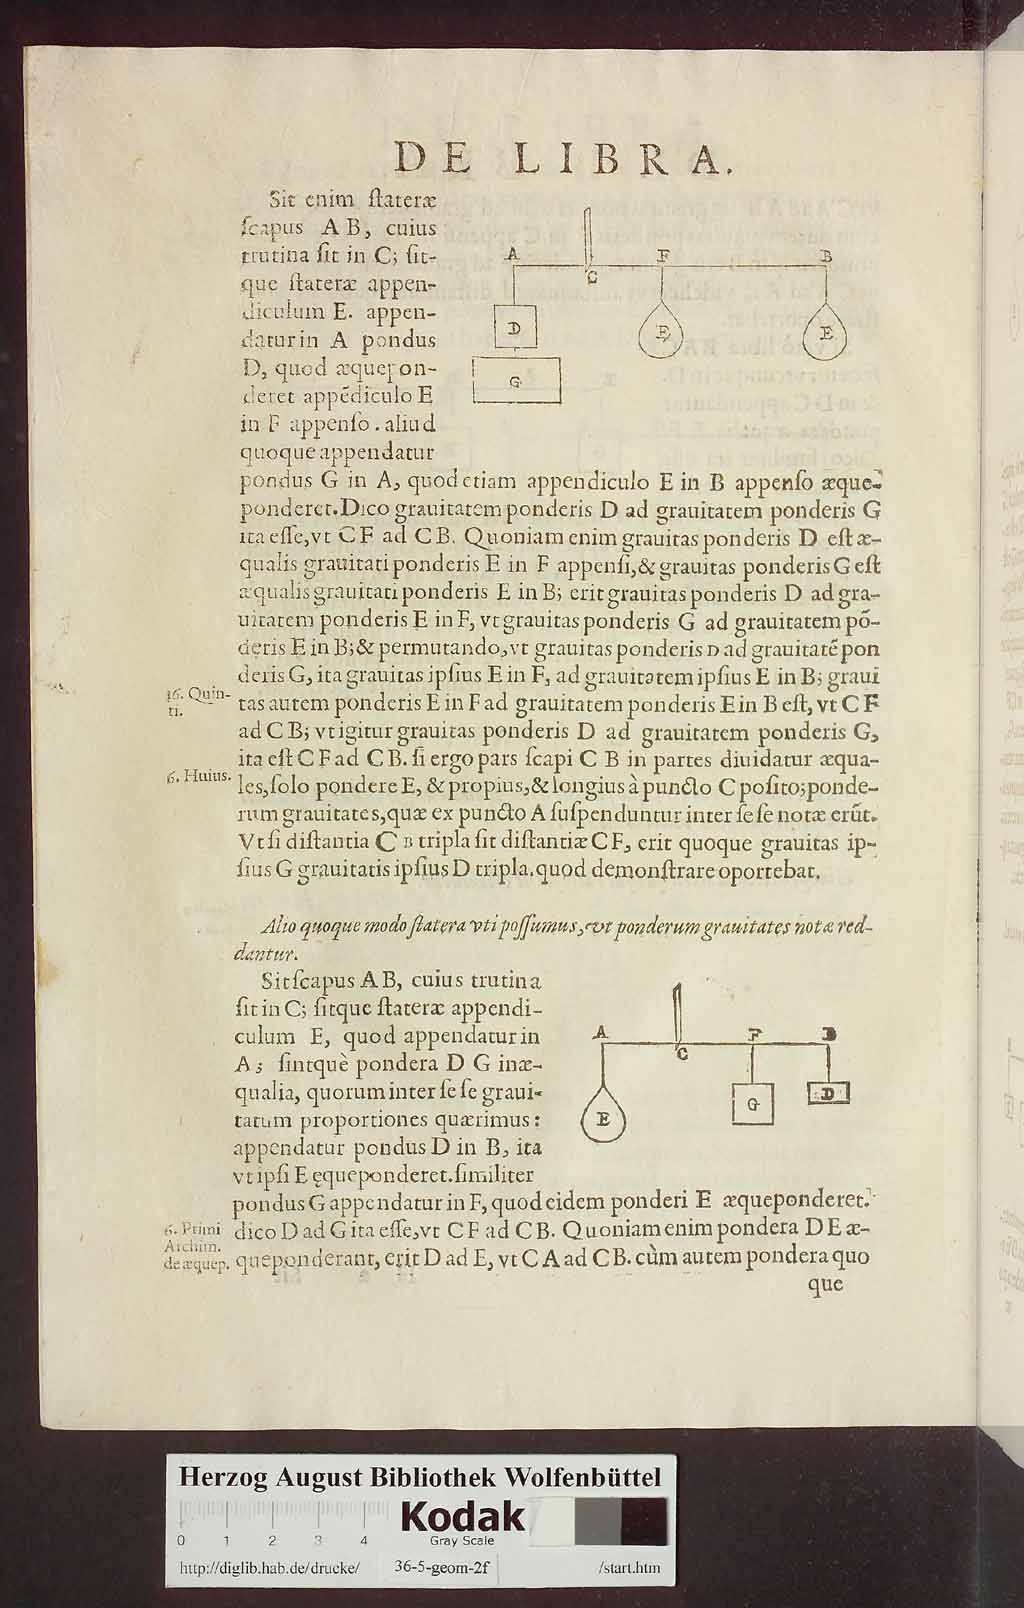 DE LIBRA.
Sit enim ſtateræ
ſcapus A B, cuius
trutina ſit in C; ſit-
que ſtateræ appen-
diculum E. appen-
datur in A pondus
D, quod æquepon-
deret appēdiculo E
in F appenſo. aliud
quoque appendatur
A
C
F
B
D
E
E
G
pondus G in A, quod etiam appendiculo E in B appenſo æque-
ponderet. Dico grauitatem ponderis D ad grauitatem ponderis G
ita eſſe, vt CF ad CB. Quoniam enim grauitas ponderis D eſt æ-
qualis grauitati ponderis E in F appenſi, & grauitas ponderis G eſt
æqualis grauitati ponderis E in B; erit grauitas ponderis D ad gra-
uitatem ponderis E in F, vt grauitas ponderis G ad grauitatem pō-
deris E in B; & permutando, vt grauitas ponderis D ad grauitatē pon
deris G, ita grauitas ipſius E in F, ad grauitatem ipſius E in B; graui
16. Quin-
ti.
tas autem ponderis E in F ad grauitatem ponderis E in B eſt, vt CF
ad CB; vt igitur grauitas ponderis D ad grauitatem ponderis G,
ita eſt CF ad CB. ſi ergo pars ſcapi CB in partes diuidatur æqua-
6. Huius.
les, ſolo pondere E, & propius, & longius à puncto C poſito; ponde-
rum grauitates, quæ ex puncto A ſuſpenduntur inter ſeſe notæ erūt.
Vt ſi diſtantia CB tripla ſit diſtantiæ CF, erit quoque grauitas ip-
ſius G grauitatis ipſius D tripla. quod demonſtrare oportebat.
Alio quoque modo ſtatera vti poſſumus, vt ponderum grauitates notæ red-
dantur.
Sit ſcapus AB, cuius trutina
ſit in C; ſitque ſtateræ appendi-
culum E, quod appendatur in
A; ſintquè pondera D G inæ-
qualia, quorum inter ſeſe graui-
tatum proportiones quærimus:
appendatur pondus D in B, ita
vt ipſi E ęqueponderet. ſimiliter
A
C
F
B
E
G
D
pondus G appendatur in F, quod eidem ponderi E æqueponderet.
6. Primi
Archim.
de æquep.
dico D ad G ita eſſe, vt CF ad CB. Quoniam enim pondera D E æ-
queponderant, erit D ad E, vt CA ad CB. cùm autem pondera quo
que
Herzog August Bibliothek Wolfenbüttel
Kodak
Gray Scale
0 1 2 3 4
http://diglib.hab.de/drucke/ 36-5-geom-2f /start.htm